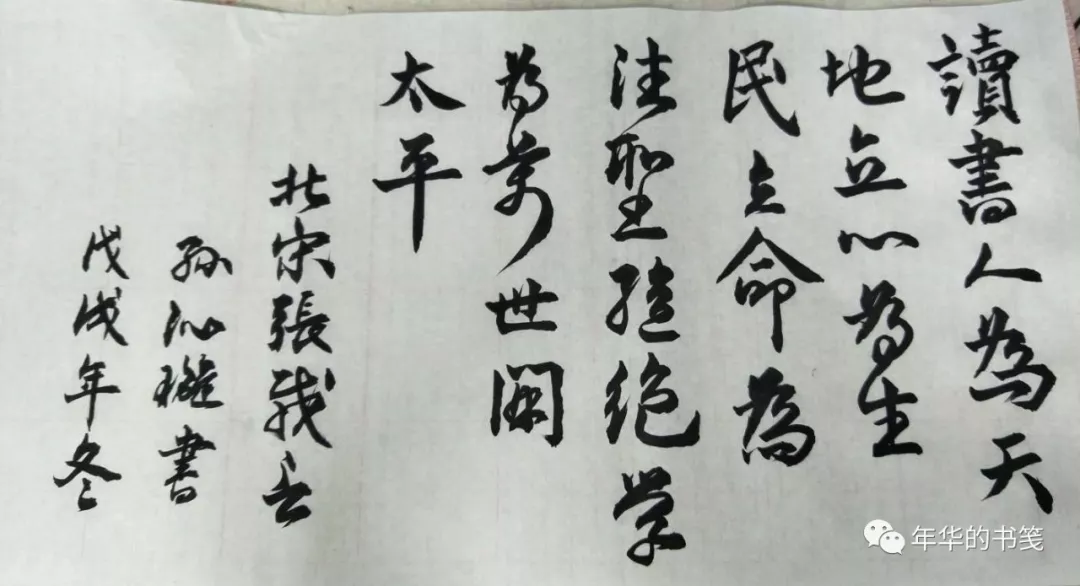 讀書人為天
地立心為生
民立命為
往聖繼絕学
為萬世開
太平
北宋張載言
孫沁璇書
戊戌年冬
年华的书笺